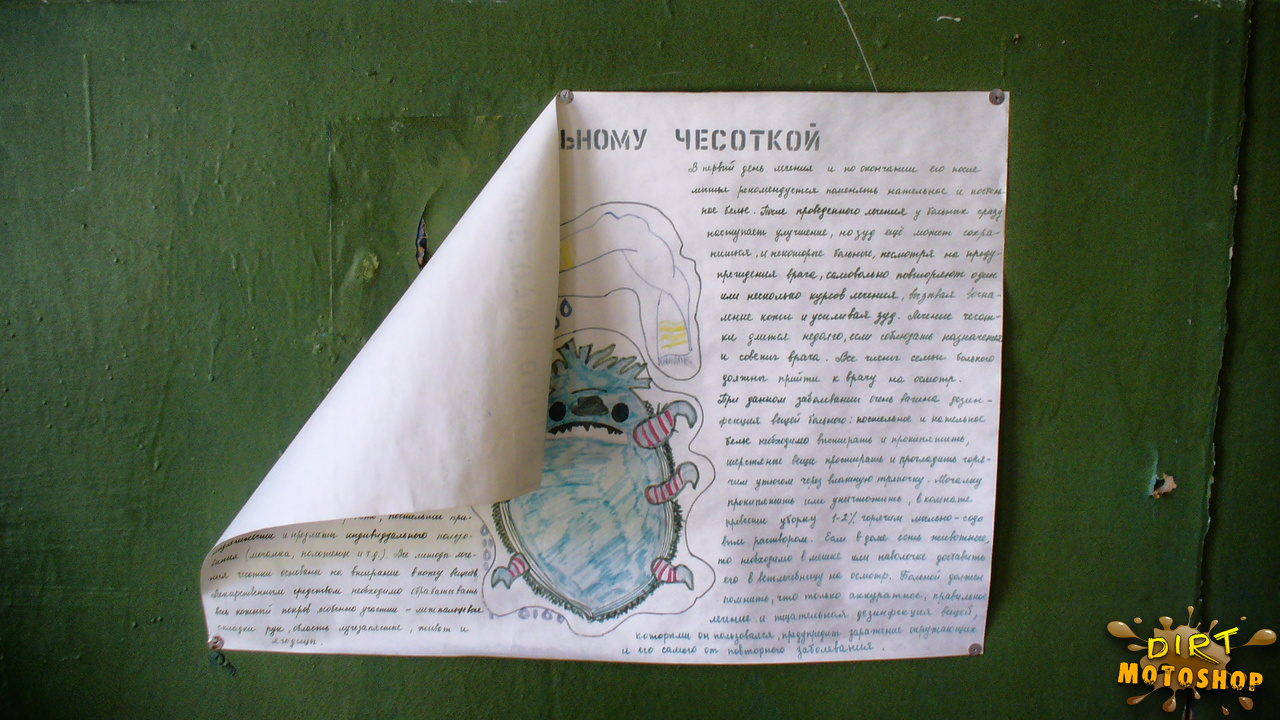 ЬНОМУ ЧЕСОТКОЙ
В первый день лечения и по окончании его после
мытья рекомендуется поменять нательное и постель-
ное белье. После проведенного лечения у больных сразу
наступает улучшение, но зуд ещё может сохра-
ниться, и некоторые больные, несмотря на преду-
преждения врача, самовольно повторяют один
или несколько курсов лечения, вызывая воспа-
ление кожи и усиливая зуд. Лечение чесот-
ки длится недолго, если соблюдать назначения
и советы врача. Все члены семьи больного
должны прийти к врачу на осмотр.
При данном заболевании очень важна дезин-
фекция вещей больного: постельное и нательное
белье необходимо выстирать и прокипятить,
шерстяные вещи простирать и прогладить горя-
чим утюгом через влажную тряпочку. Мочалку
прокипятить или уничтожить, в комнате
провести уборку 1-2% горячим мыльно-содо
вым раствором. Если в доме есть животные,
то необходимо в мешке или наволочке доставить
его в ветлечебницу на осмотр. Больной должен
помнить, что только аккуратное, правильное
лечение и тщательная дезинфекция вещей,
которыми он пользовался, предупредит заражение окружающих
и его самого от повторного заболевания.
постельные при-
надлежности и предметы индивидуального пользо-
вания (мочалка, полотенце и т.д.). Все методы лече-
ния чесотки основаны на втирание в кожу веществ
Лекарственным средством необходимо обрабатывать
весь кожный покров особенно участки - межпальцевые
складки рук, область лучезапястные, живот и
ягодицы.
DIRT
MOTOSHOP